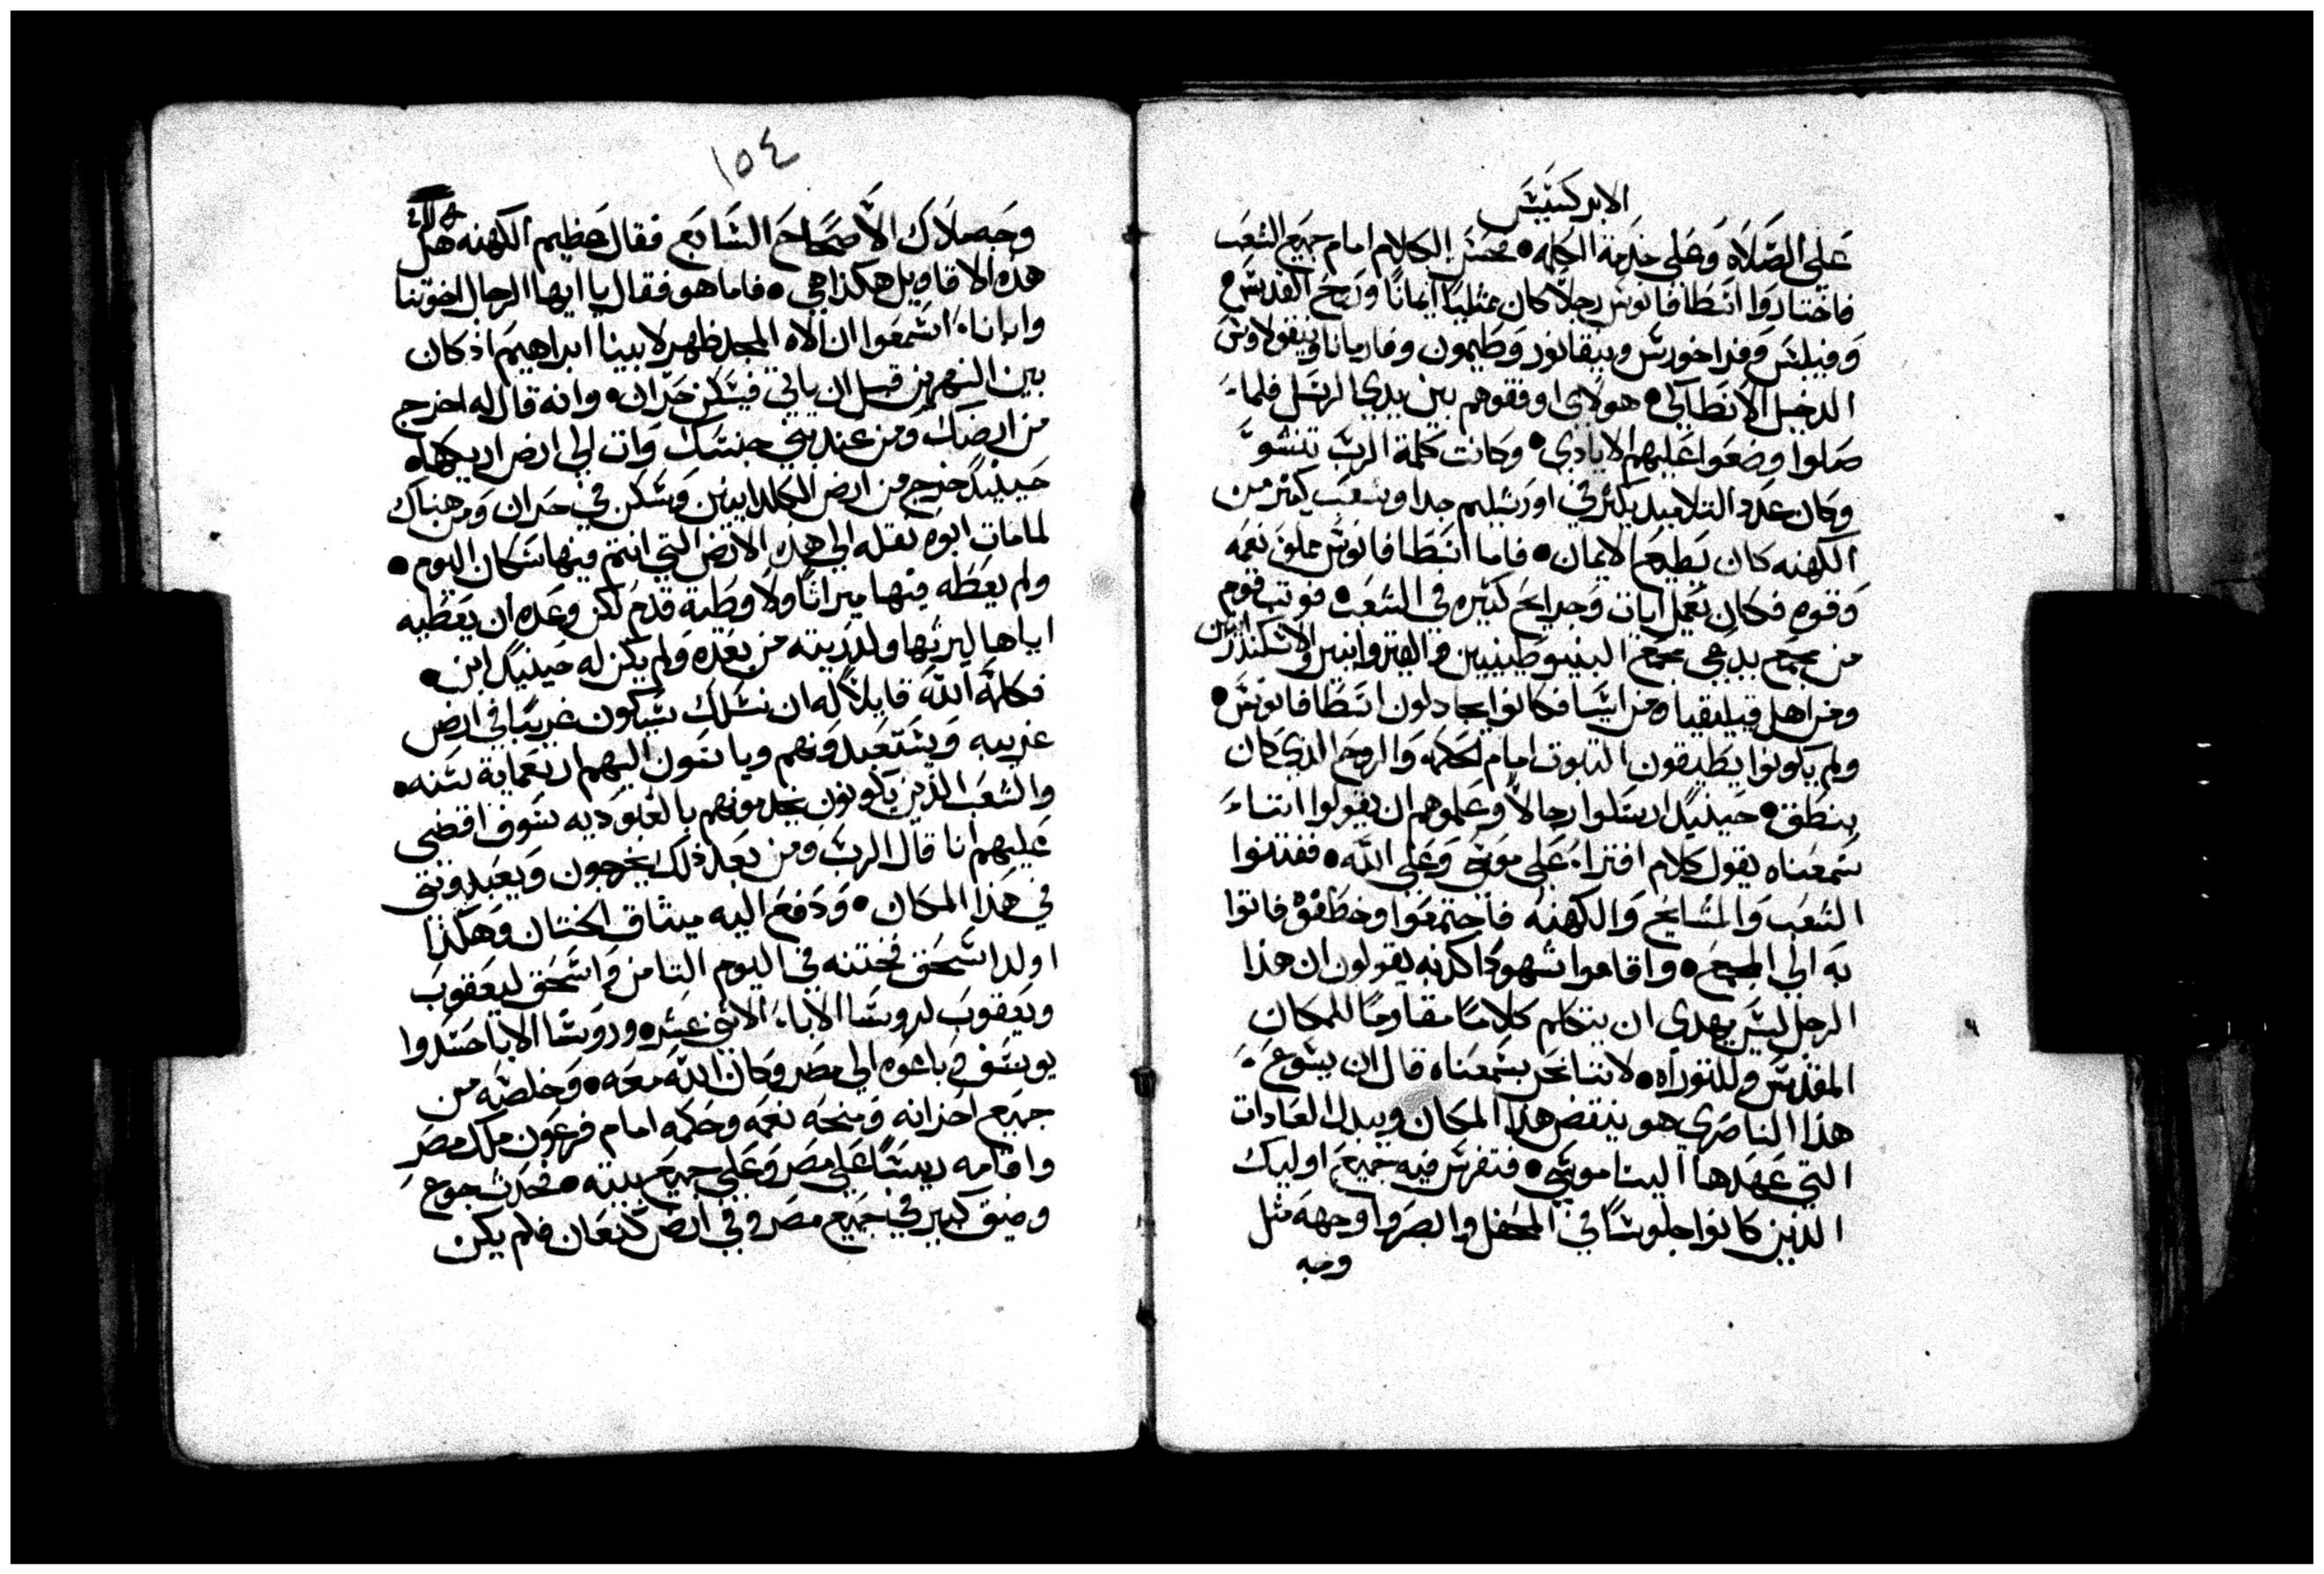 الابركسيس
علي الصلاه وعلي خدمة الكلمه • فحسن الكلام امام جميع الشعب
فاختاروا اسطافانوس رجلاً كان ممتلياً ايماناً وروح القدس •
وفيلبس وفراخورس ونيقانور وطيمون وفارمانا ونيقولاوس
الدخيل الانطاكي • هولاي اوقفوهم بين يدي الرسل فلما
صلوا وضعوا عليهم الايادي • وكانت كلمة الرب تنشو
وكان عدد التلاميد يكثر في اورشليم جدا وشعب كثير من
الكهنه كان يطيع الايمان • فاما اسطافانوس مملو نعمه
وقوه فكان يعمل ايات وجرايح كثيره في الشعب • فوتب قوم
من مجمع يدعي مجمع الينبوطينيين والقيروانيين والاسكندرانيين
ومن اهل قيليقيا ومن اسيا فكانوا يجادلون اسطافانوس •
ولم يكونوا يطيقون التبوت امام الحكمه والروح الدي كان
ينطق • حينيد ارسلوا رجالاً وعلموهم ان يقولوا اننا
سمعناه يقول كلام افتراء علي موسي وعلي الله • ففتنوا
الشعب والمشايخ والكهنه فاجتمعوا وخطفوه فاتوا
به الي المجمع • واقاموا شهوداً كدبه يقولون ان هذا
الرجل ليس يهدي ان يتكلم كلاماً مقاوماً للمكان
المقدس وللتوراه • لاننا نحن سمعناه قال ان يسوع
هذا الناصري هو ينقض هذا المكان ويبدل العادات
التي عهدها الينا موسي • فتفرس فيه جميع اوليك
الذين كانوا جلوساً في المحفل وابصروا وجهه مثل
وجه
١٥٤
وجه ملاك الاصحاح السابع فقال عظيم الكهنه هل
هذه الاقاويل هكذا هي • فاما هو فقال يا ايها الرجال اخوتنا
واباناء اسمعوا ان الاه المجد ظهر لابينا ابراهيم اذ كان
بين النهرين قبل ان ياتي فيسكن حران • وانه قال له اخرج
من ارضك ومن عند بني جنسك وات الي ارض اريكها
حينيد خرج من ارض الكلدانيين وسكن في حران ومن هناك
لما مات ابوه نقله الي هذه الارض التي انتم فيها سكان اليوم •
ولم يعطه فيها ميراثاً ولا وطية قدم لكن وعده ان يعطيه
اياها ليرثها ولدريته من بعده ولم يكن له حينيد ابن •
فكلمه الله قايلاً له ان نسلك سيكون غريباً في ارض
غريبه ويستعبدونهم وياتون اليهم اربعماية سنه •
والشعب الذين يكونون يخدمونهم بالعبوديه سوف اقضي
عليهم انا قال الرب ومن بعد ذلك يخرجون ويعبدوني
في هذا المكان • ودفع اليه ميثاق الختان وهكذا
اولد اسحق فختنه في اليوم الثامن واسحق ليعقوب
ويعقوب لروسا الاباء الاثني عشر • وروسا الابا حسدوا
يوسف فباعوه الي مصر وكان الله معه • وخلصه من
جميع احزانه ومنحه نعمه وحكمه امام فرعون ملك مصر
واقامه ريساً علي مصر وعلي جميع بيته • فحدث جوع
وضيق كبير في جميع مصر وفي ارض كنعان فلم يكن